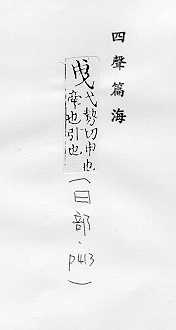 四聲篇海
弋勢切申也
牽也引也
(日部·p413)